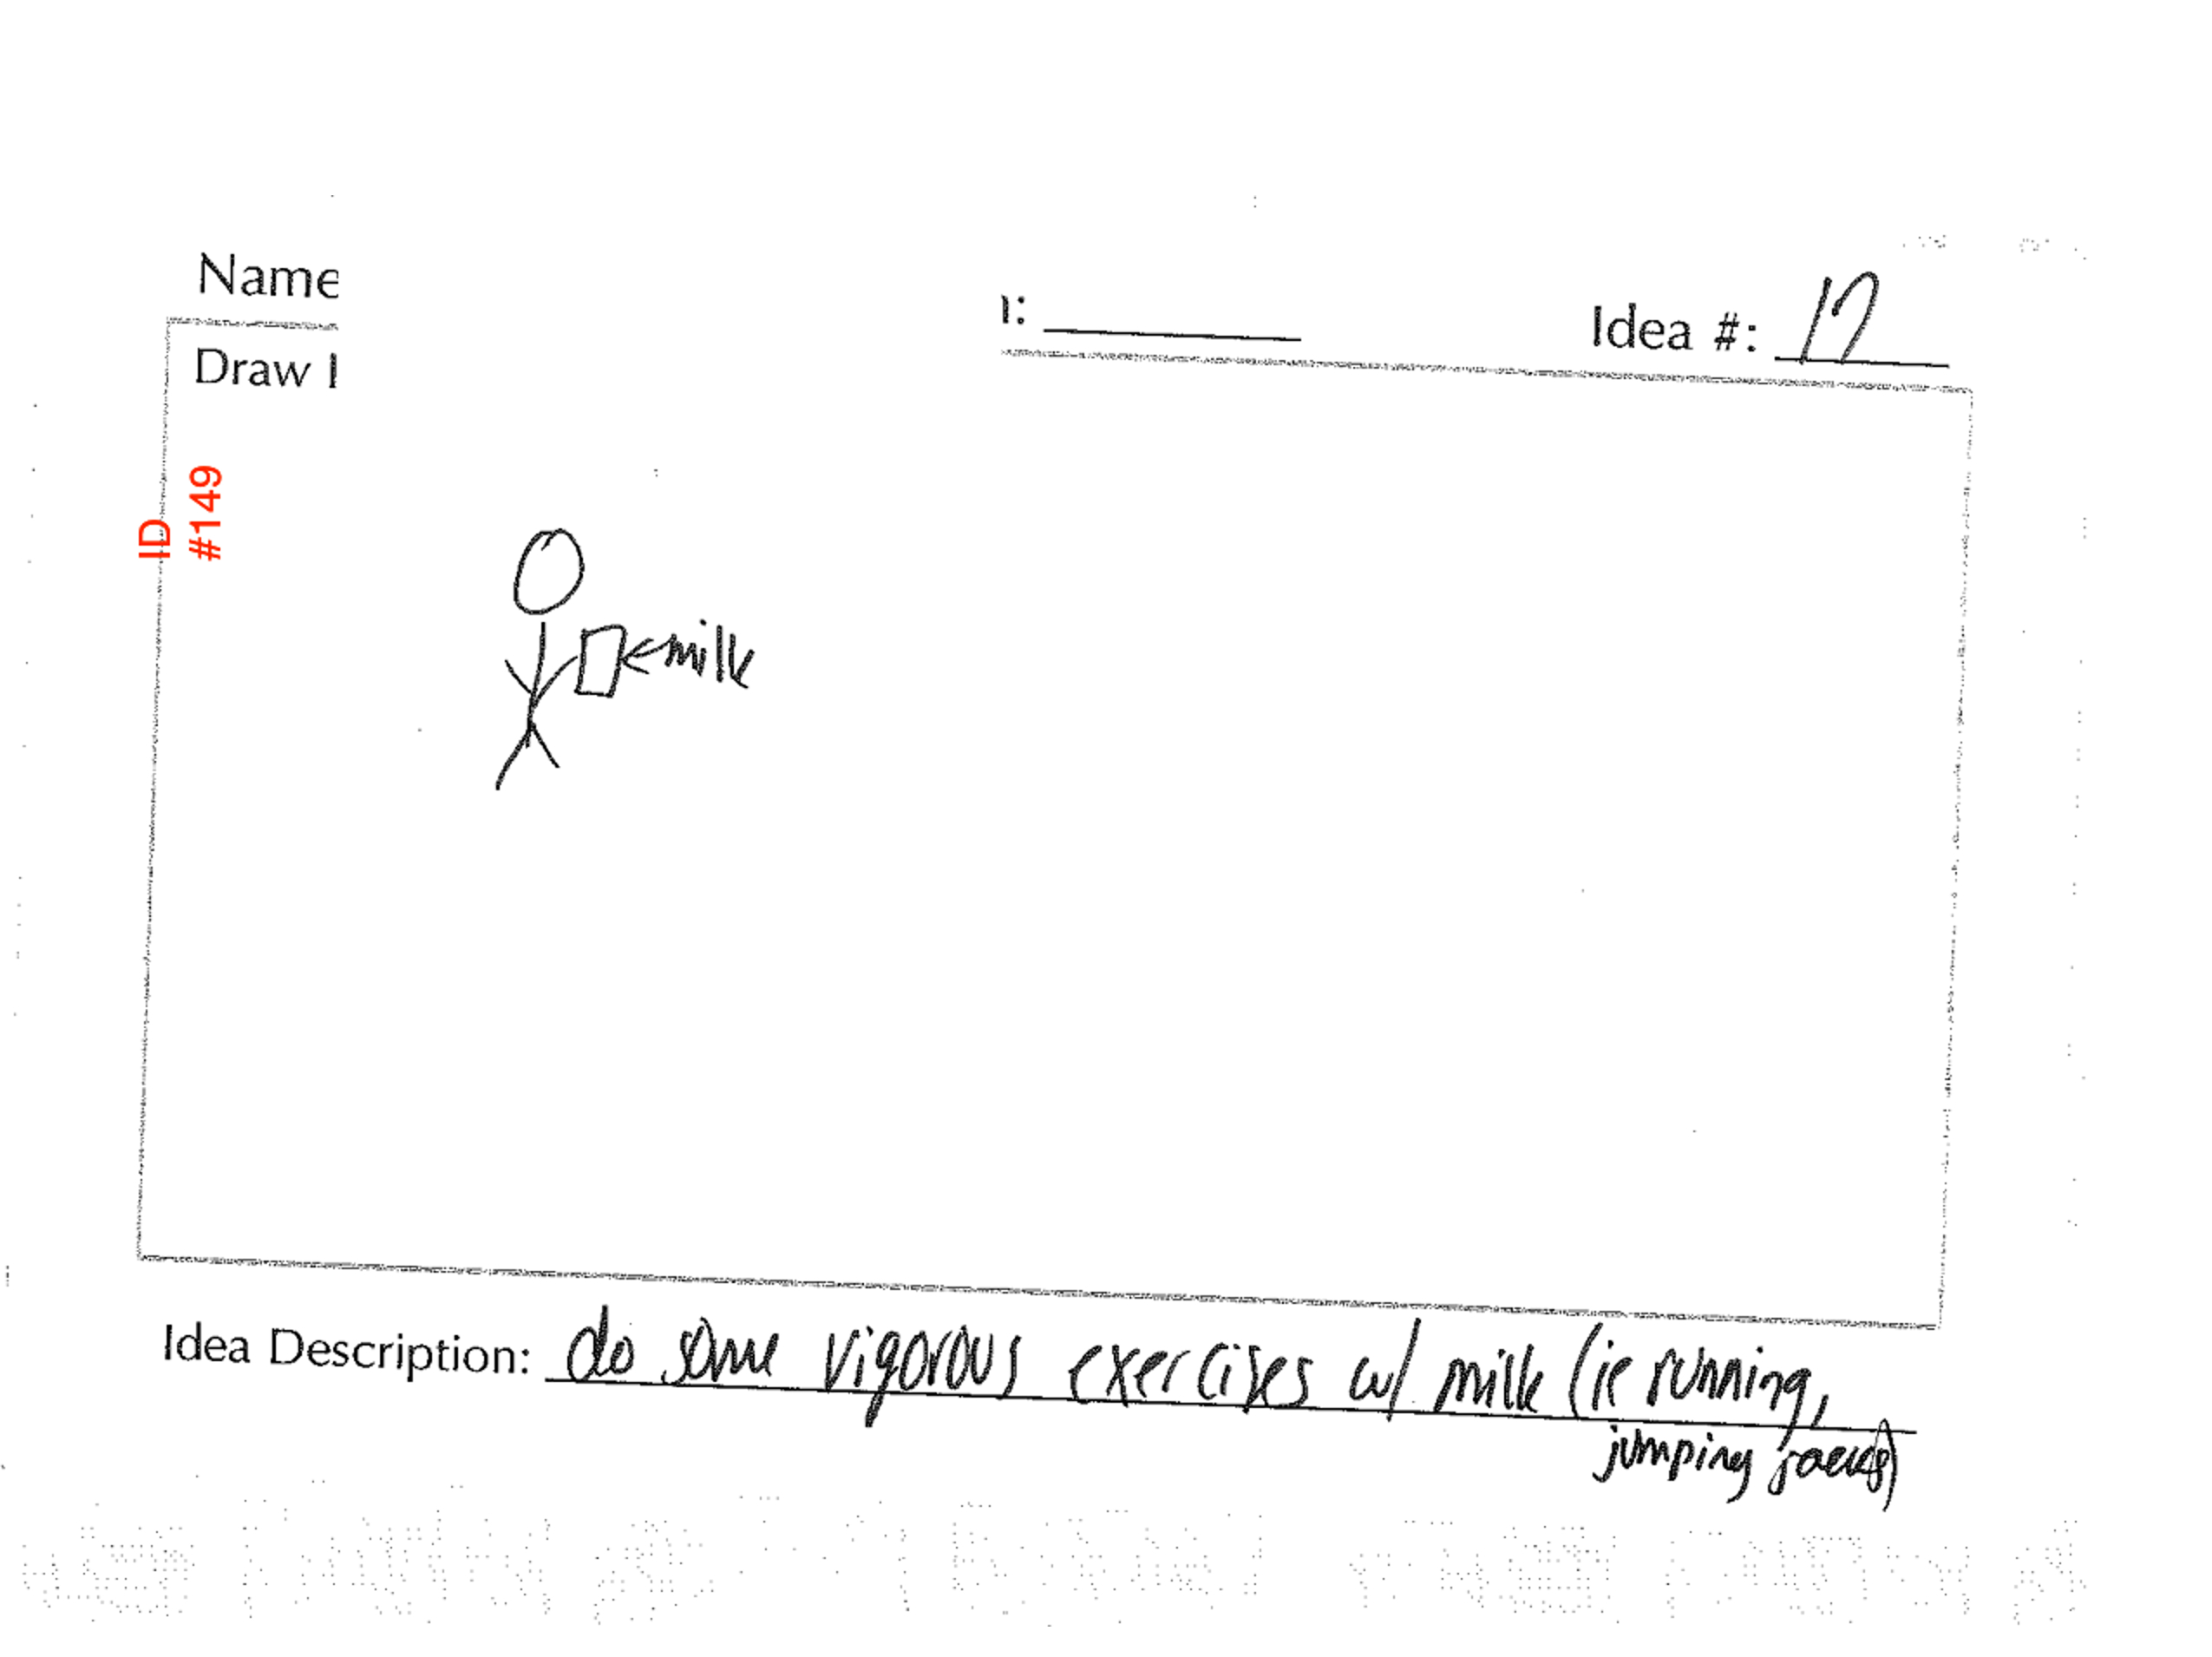 Name
ı:
Idea #: 17
Draw I
ID
#149
←milk
Idea Description: do some vigorous exercises w/ milk (ie running,
jumping jacks)